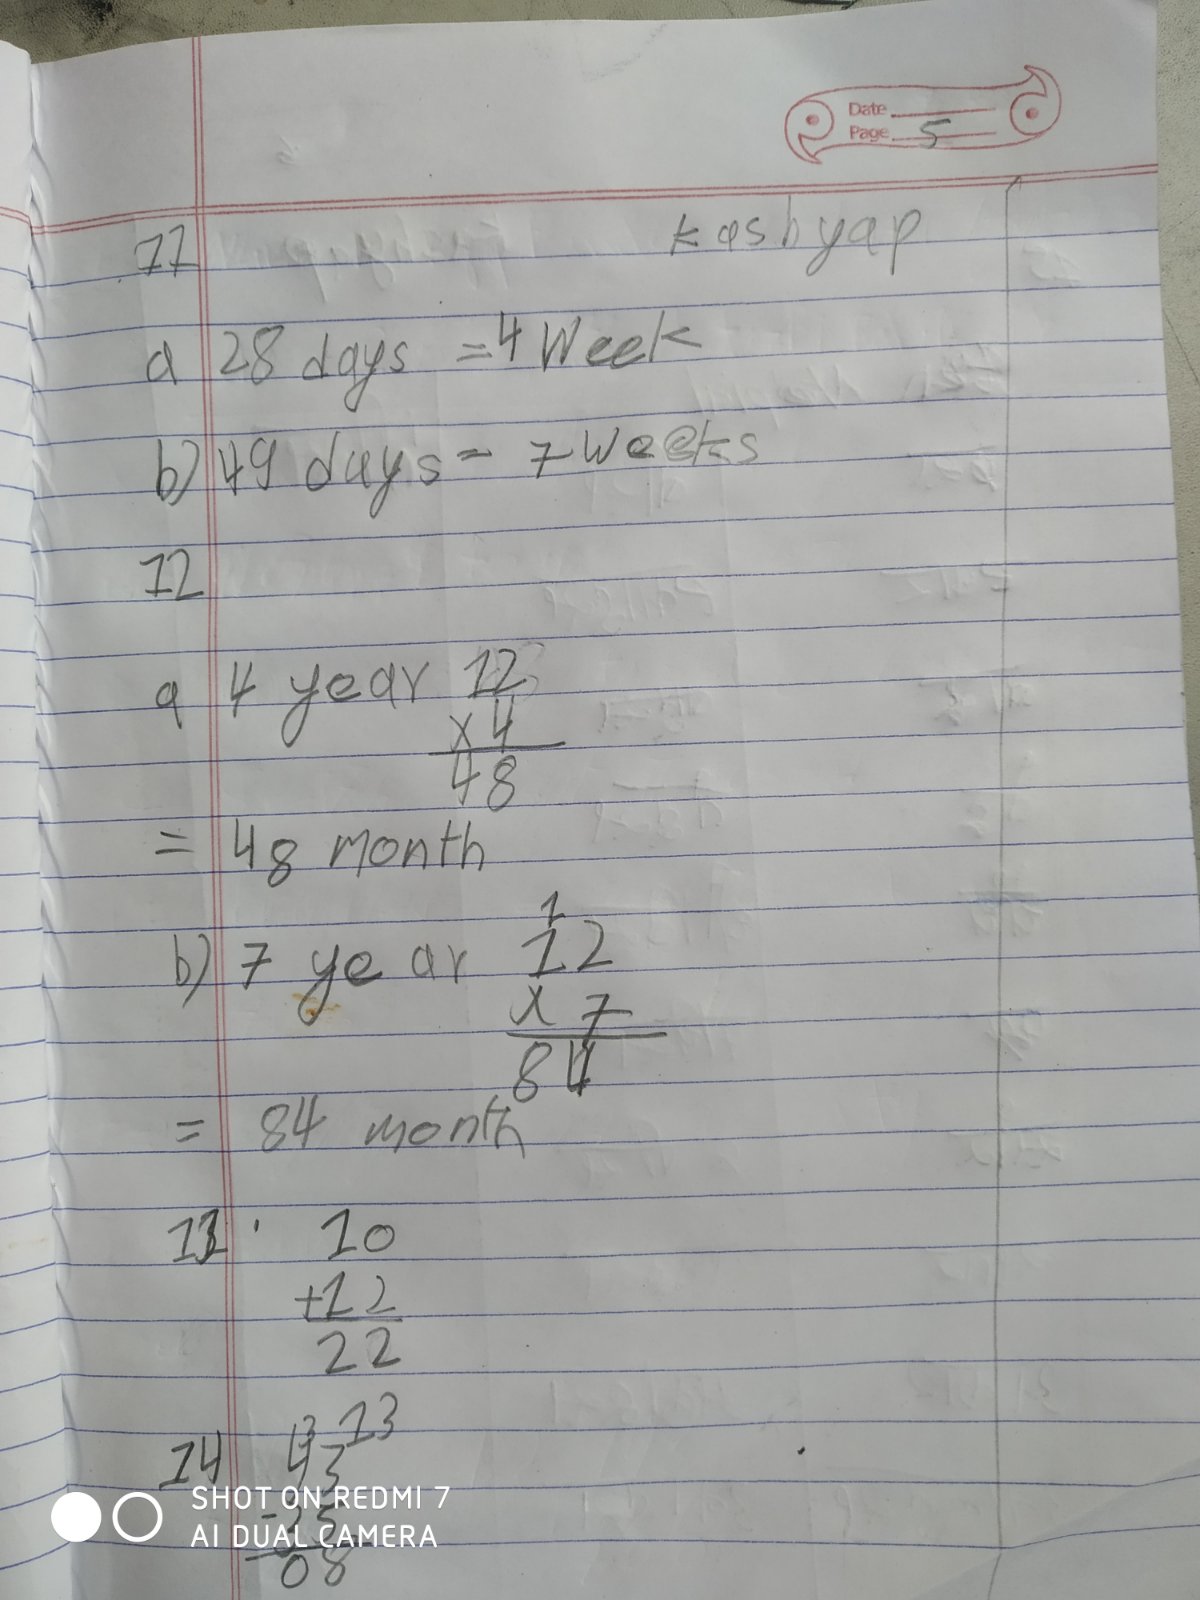 Date
Page 5
11 kashyap
a 28 days = 4 Week
b) 49 days = 7 Weeks
12
a 4 year 12
x 4
48
= 48 month
1
b) 7 year 12
x 7
84
= 84 month
13. 10
+12
22
3 13
14 43
SHOT ON REDMI 7
AI DUAL CAMERA
08